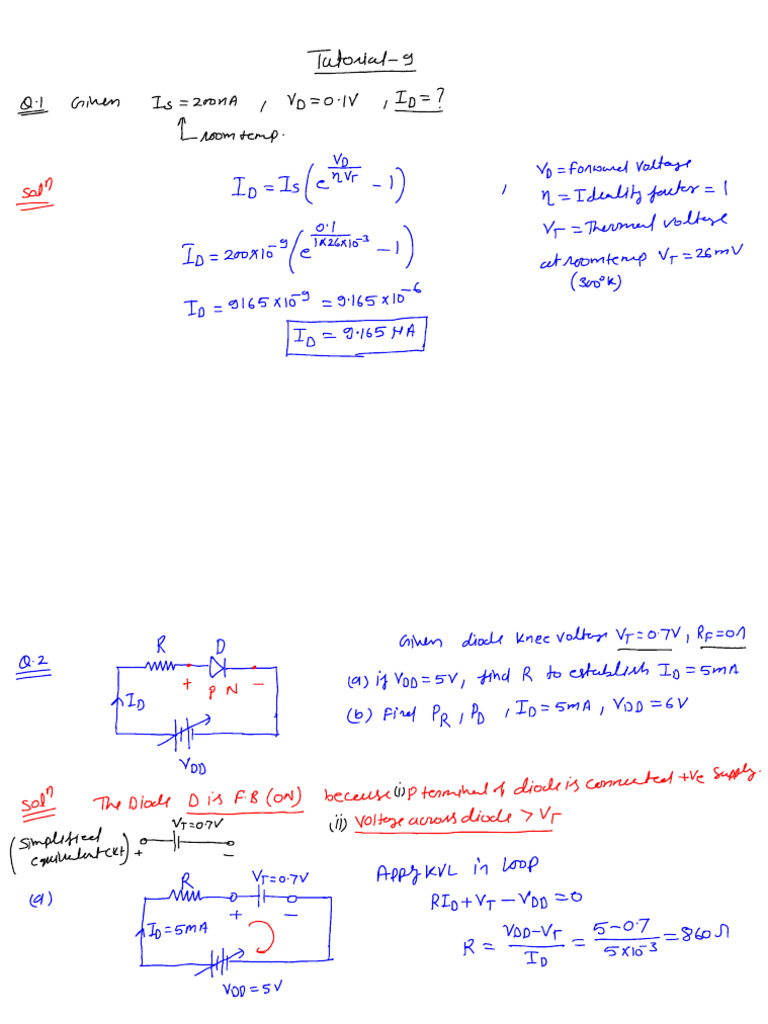 Tutorial-9
Q.1 Given Is = 200nA , VD = 0.1V , ID = ?
room temp.
Solⁿ
ID = Is (e^(VD/ηVT) - 1) ,
VD = Forward Voltage
η = Ideality factor = 1
VT = Thermal voltage
at room temp VT = 26mV
(300°K)
ID = 200×10⁻⁹ (e^(0.1/1×26×10⁻³) - 1)
ID = 9165×10⁻⁹ = 9.165×10⁻⁶
ID = 9.165 μA
Q.2
R D
+ P N -
ID
VDD
Given diode knee voltage VT = 0.7V, RF = 0Ω
(a) if VDD = 5V, find R to establish ID = 5mA
(b) Find PR, PD , ID = 5mA, VDD = 6V
Solⁿ The Diode D is F.B (ON) because (i) P terminal of diode is connected +ve supply.
(ii) Voltage across diode > VT
(Simplified equivalent ckt)
VT = 0.7V
+ -
(a)
R VT = 0.7V
+ -
ID = 5mA
VDD = 5V
Apply KVL in loop
RID + VT - VDD = 0
R = (VDD - VT)/ID = (5 - 0.7)/(5×10⁻³) = 860Ω